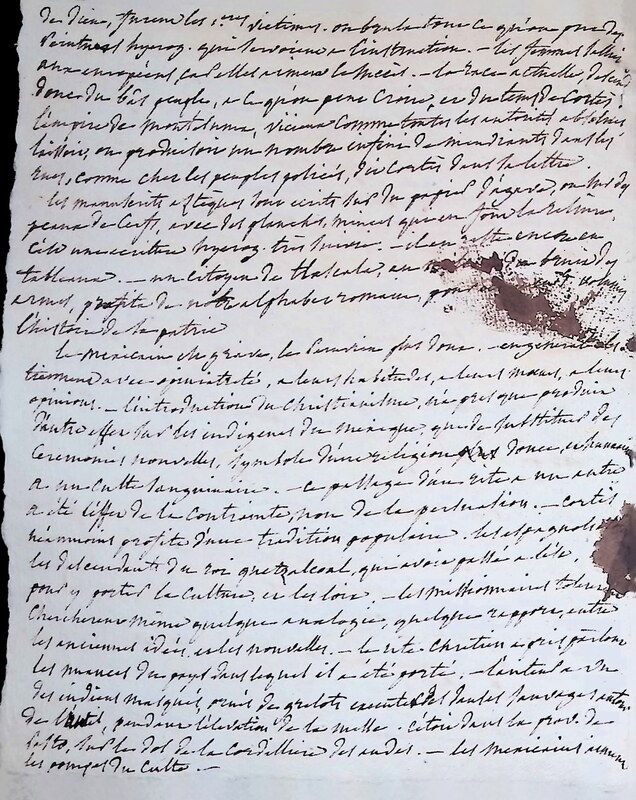 de dieu, furent les 1ères victimes. on brula donc ce qu'on put des
peintures hyerog. qui servoient a l'instruction. — les femmes s'allient
aux européens, car elles aiment le succès. — la race actuelle, descend
donc du bas peuple, a ce qu'on peut croire, et du tems de Cortès
l'empire de Montezuma, vicieux comme toutes les autorités absolues
laissoit, ou produisoit un nombre enfini de mendiants dans les
rues, comme chez les peuples policés, dit Cortès dans sa lettre
les manuscrits aztèques sont écrits sur du papier d'agave, ou sur des
peaux de cerfs, avec des planches minces qui en font la reliure,
c'est une écriture hyerog. tres — il en reste encore en
tableaux. — un citoyen de tlascala, au bruit des
armes, profite de notre alphabet romain, pour volumes
l'histoire de sa patrie
le mexicain est grave, le Péruvien plus doux. — en général ils
tiennent avec opiniatreté, a leurs habitudes, a leurs mœurs, a leurs
opinions. — l'introduction du Christianisme, n'a presque produit
d'autre effet sur les indigènes du mexique, que de substituer des
cérémonies nouvelles, symbole d'une religion plus douce, et humaine
a un culte sanguinaire. — ce passage d'un rite a un autre
a été l'effet de la contrainte, non de la persuasion. — Cortès
néanmoins profite d'une tradition populaire. les espagnols
les descendants du roi quetzalcoal, qui avoit passé a l'est
pour y porter la culture, et les loix. — les missionnaires
chercherent même quelque analogie, quelque rapport, entre
les anciennes idées, et les nouvelles. — le rite chretien a pris partout
les nuances du pays dans lequel il a été porté. — l'auteur a vu
des indiens masqués, ornés de grelots executer des danses sauvages autour
de l'autel, pendant l'élévation de la messe. c'etoit dans la prov. de
Pasto, sur le dos de la Cordelliere des andes. — les mexicains aiment
les pompes du culte. —